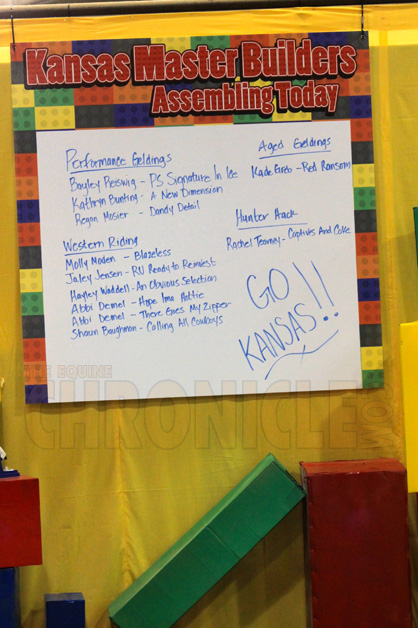 Kansas Master Builders
Assembling Today
Performance Geldings
Bayley Reiswig - PS Signature In Ice
Kathryn Bunting - A New Dimension
Regan Mosier - Dandy Detail
Western Riding
Molly Moden - Blazeless
Jaley Jensen - RU Ready to Remiest
Hayley Waddell - An Obvious Selection
Abbi Demel - Hope Ima Hottie
Abbi Demel - There Goes My Zipper
Shawn Baughman - Calling All Cowboys
Aged Geldings
Kade Greb - Red Ransom
Hunter Hack
Rachel Tearney - Captives And Coke
GO
KANSAS!!
THE EQUINE
CHRONICLE
.COM